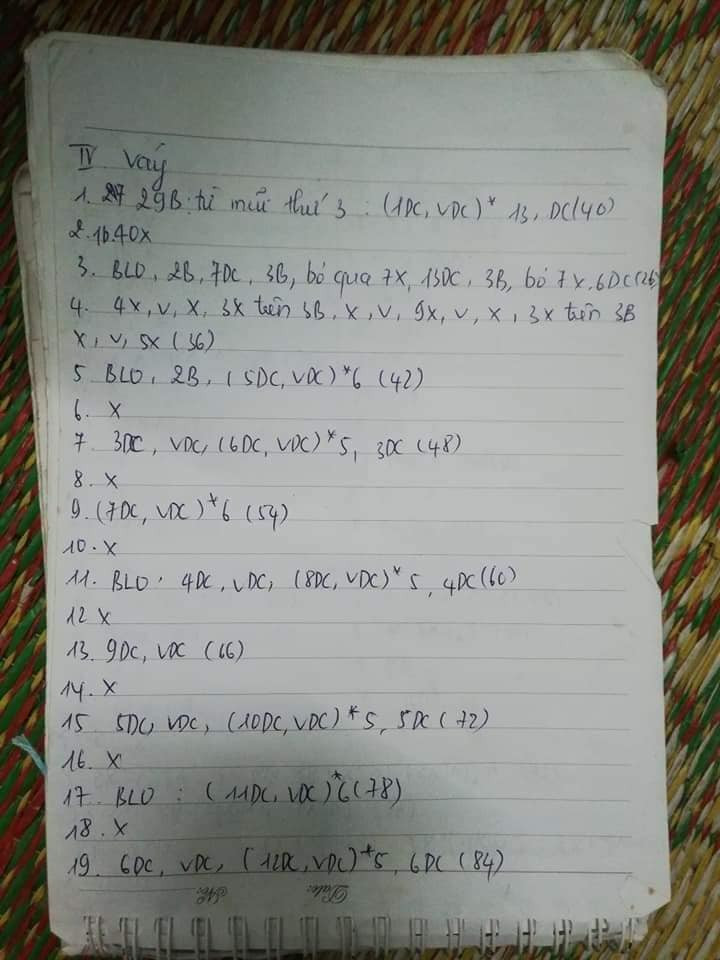 IV Váy
1. 29B: từ mũi thứ 3 : (1DC, VDC)* 13, DC(40)
2. 1b.40X
3. BLO, 2B, 7DC, 3B, bỏ qua 7X, 13DC, 3B, bỏ 7X, 6DC(26)
4. 4X, V, X, 3X trên 3B, X, V, 9X, V, X, 3X trên 3B
X, V, 5X (36)
5 BLO, 2B, (5DC, VDC)*6 (42)
6. X
7. 3DC, VDC, (6DC, VDC)*5, 3DC (48)
8. X
9. (7DC, VDC)*6 (54)
10. X
11. BLO. 4DC, VDC, (8DC, VDC)* 5, 4DC(60)
12 X
13. 9DC, VDC (66)
14. X
15 5DC, VDC, (10DC, VDC)*5, 5DC (72)
16. X
17. BLO : (11DC, VDC)*6(78)
18. X
19. 6DC, VDC, (12DC, VDC)*5, 6DC (84)
No. Date.